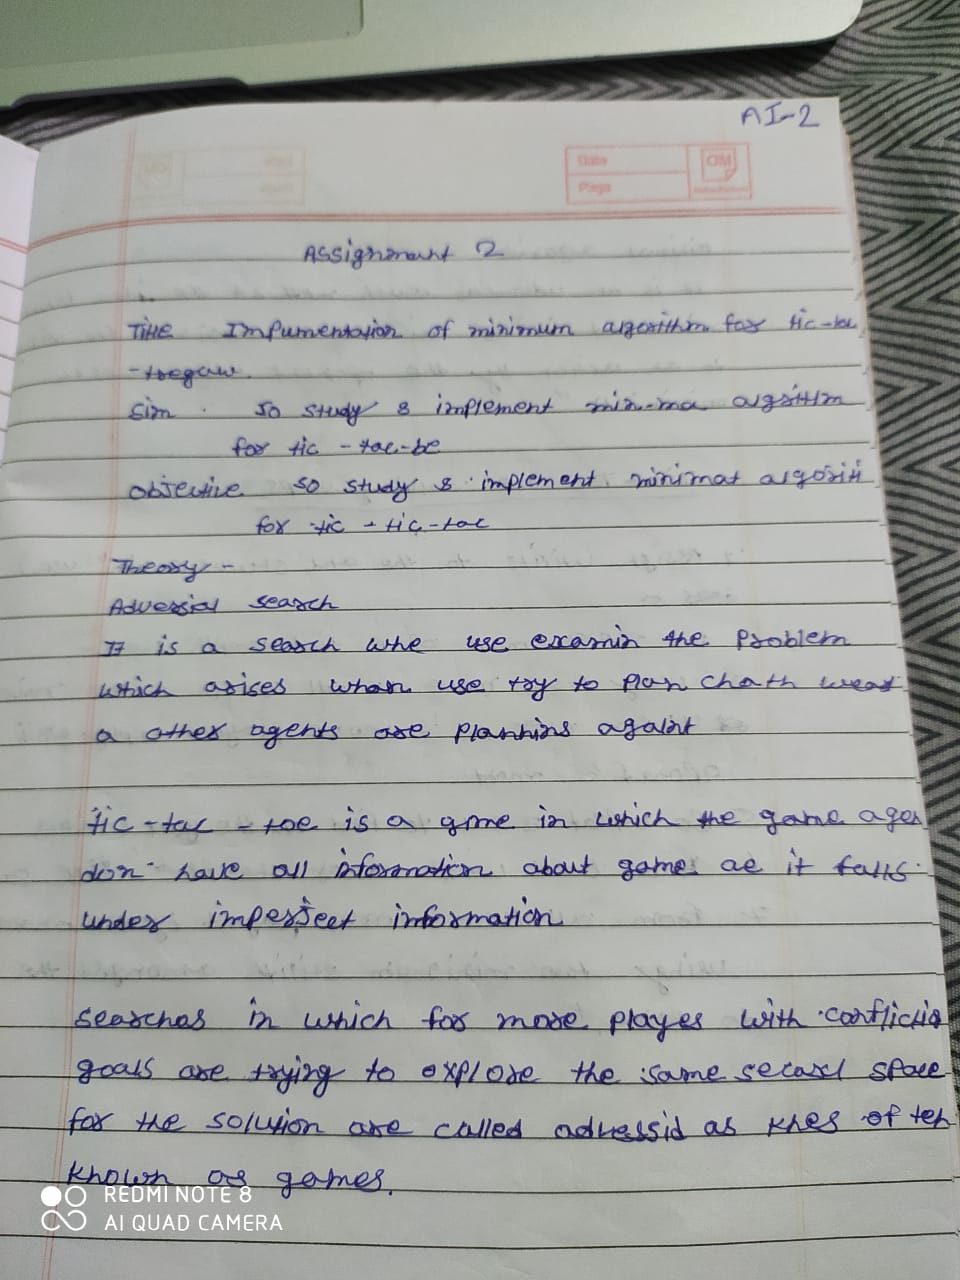 AI-2
Date
Page
OM
Assignment 2
Title Impumentation of minimum algorithm for tic-tac
-toegaw.
Sim. So study & implement min-ma algsithm
for tic-tac-be
Objective So study & implement minimat algositi
for tic-tic-tac
Theory-
Adversial search
It is a search whe use examin the problem
which arises whan use try to plan chath
a other agents are planhins agaist
tic-tac-toe is a gme in which the game agen
don have all information about game ae it falls
under imperfect information
Searches in which for more playes with conflictig
goals are trying to explore the same space
for the solution are called as often
known as games.
REDMI NOTE 8
AI QUAD CAMERA